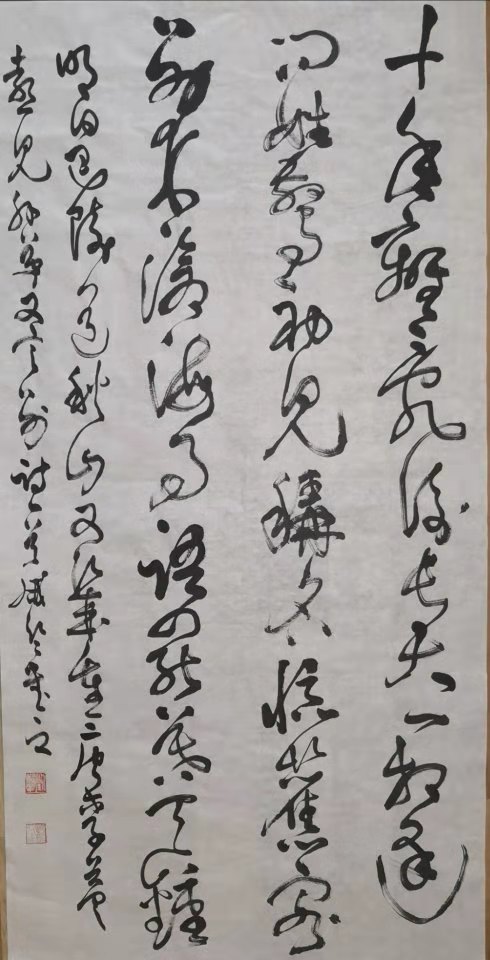 十年離亂後長大一相逢
問姓驚初見稱名憶舊容
別來滄海事語罷暮天鐘
明日巴陵道秋山又幾重
喜見外弟又言別詩